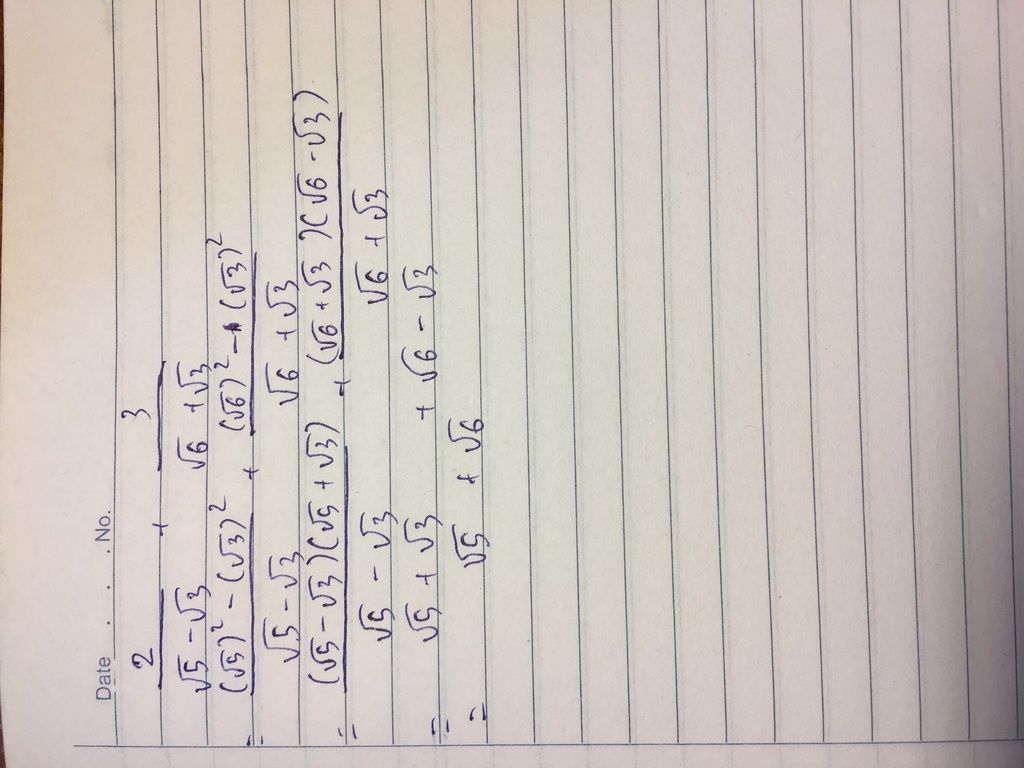 Date . . . No.
2 + 3
√5 - √3 √6 + √3
= (√5)² - (√3)² + (√6)² - (√3)²
√5 - √3 √6 + √3
= (√5 - √3)(√5 + √3) + (√6 + √3)(√6 - √3)
√5 - √3 √6 + √3
= √5 + √3 + √6 - √3
= √5 + √6